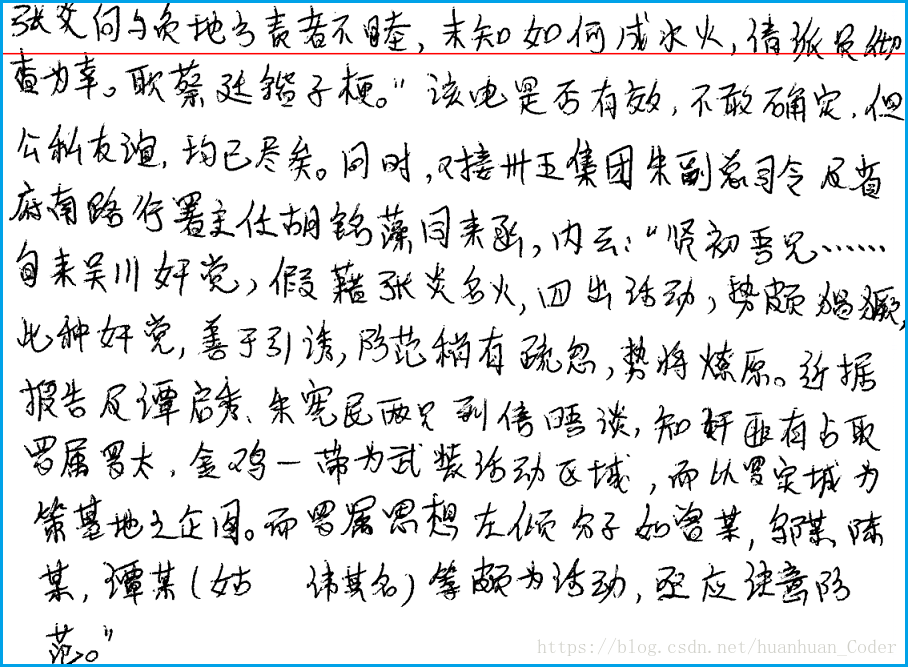 张炎何与负地方责者不睦，未知如何成水火，请派员彻
查为幸。耿蔡廷锴子梗。”该电是否有效，不敢确定，但
公私友谊，均已尽矣。同时，又接卅五集团朱副总司令及省
府南路行署主任胡铭藻同来函，内云：“贤初吾兄……
自来吴川奸党，假藉张炎名火，四出活动，势颇猖獗，
此种奸党，善于引诱，防范稍有疏忽，势将燎原。近据
报告及谭启秀、朱宪民两兄到信晤谈，知奸匪有占取
罗属罗太，金鸡一带为武装活动区域，而以罗定城为
策基地之企图。而罗属思想左倾分子如曾某，邬某，陈
某，谭某（姑讳其名）等颇为活动，亟应注意防
范。”
https://blog.csdn.net/huanhuan_Coder